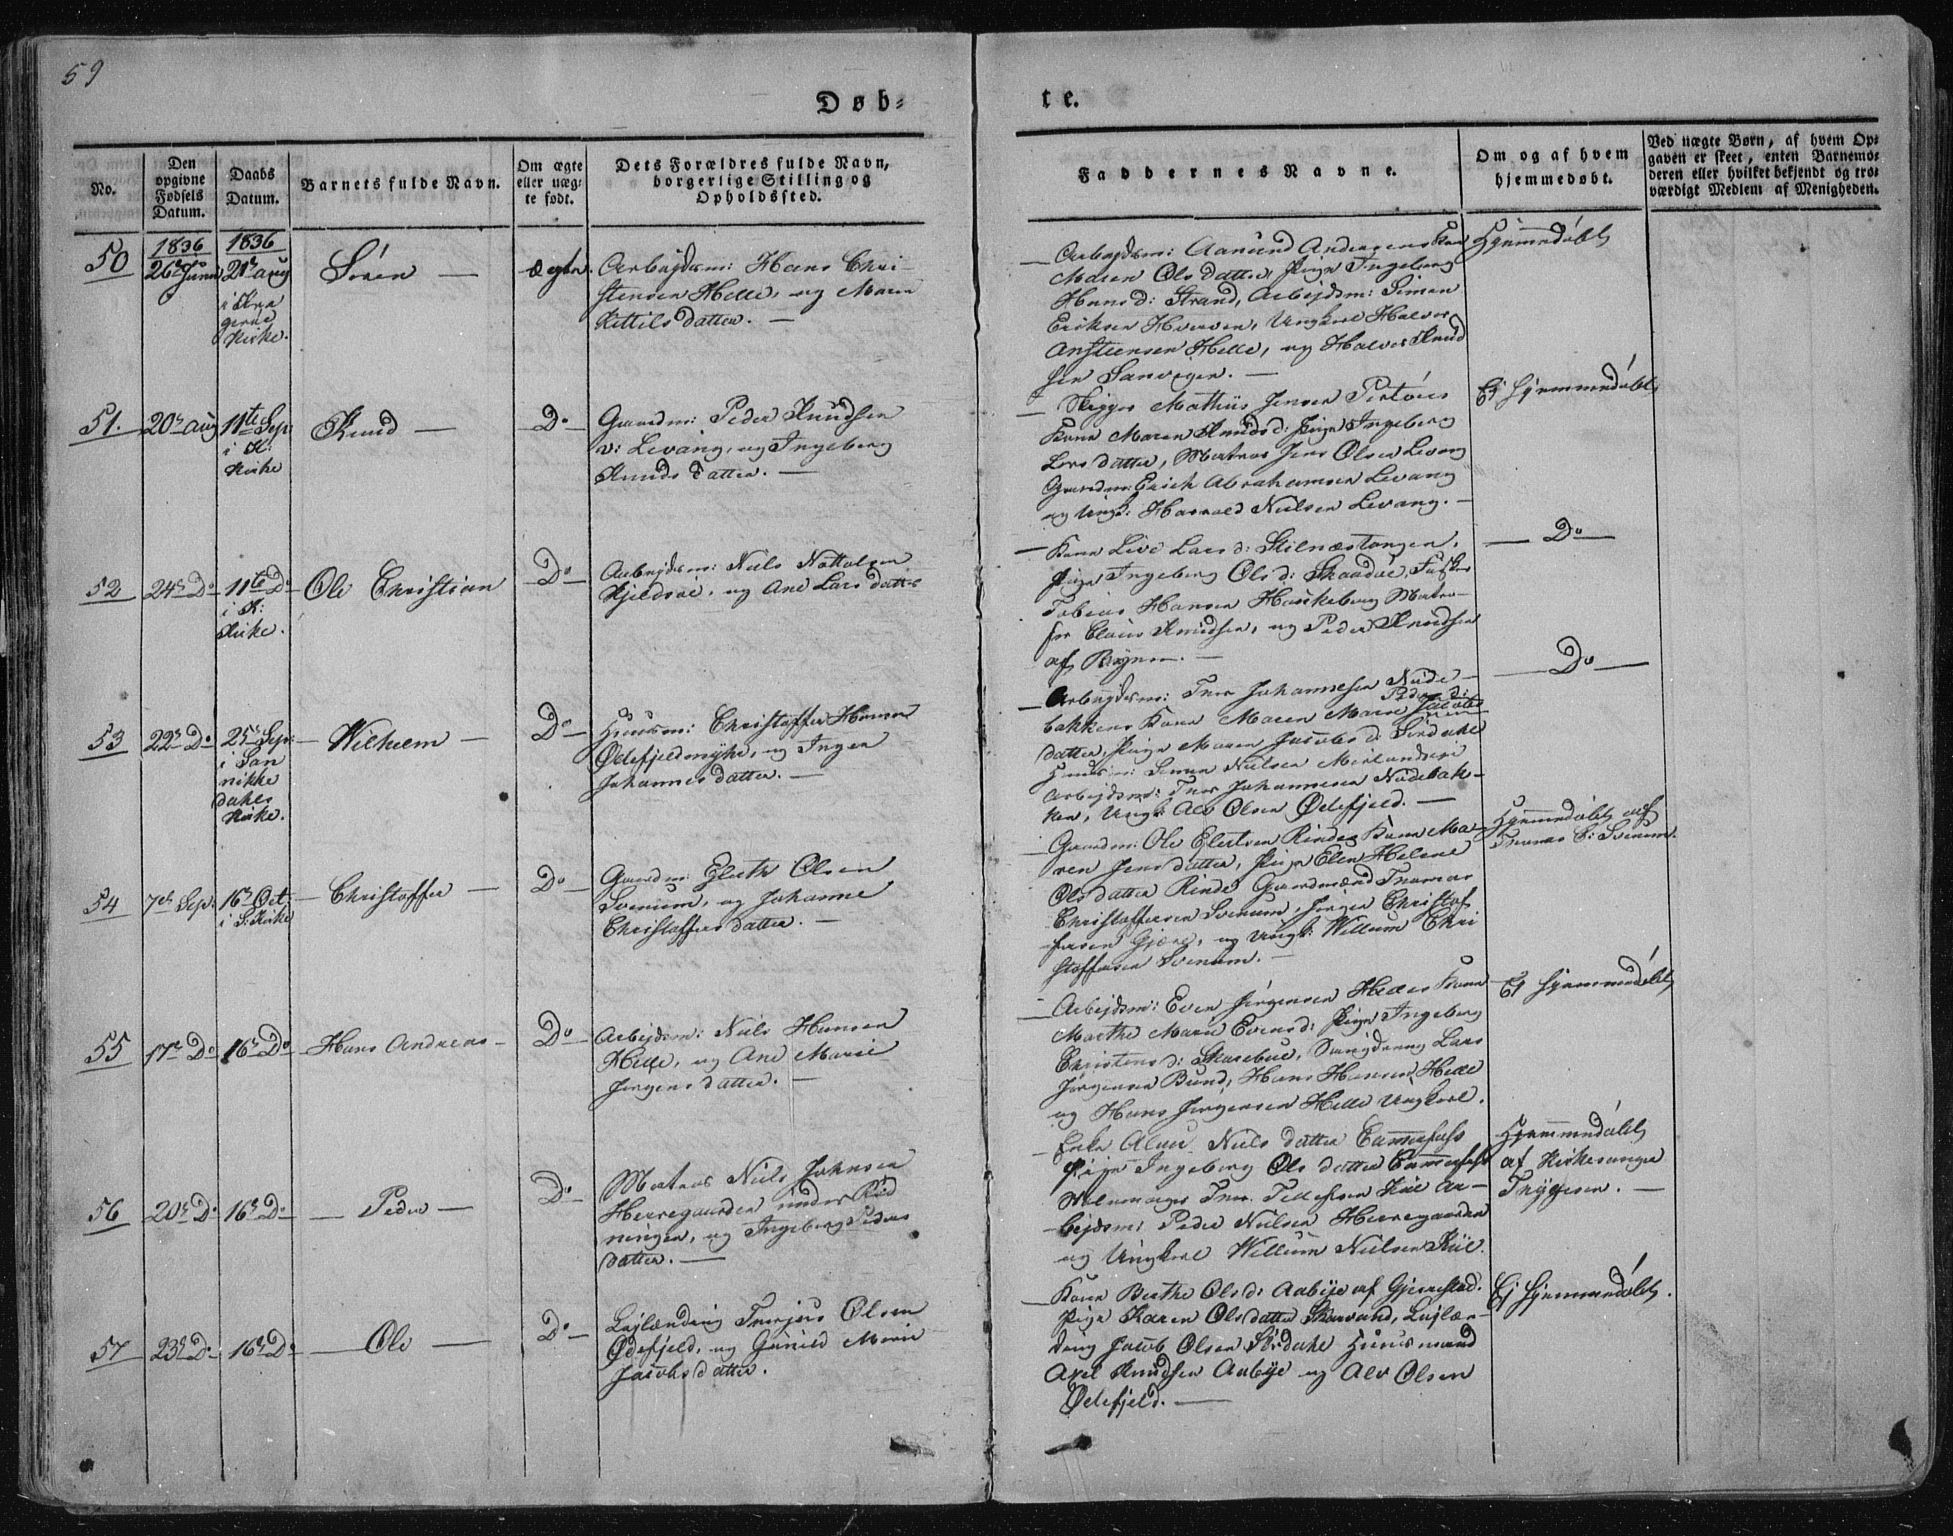 59
Døb-
te.
No.
Den opgivne Fødsels Datum.
Daabs Datum.
Barnets fulde Navn.
Om ægte eller uæg-te født.
Dets Forældres fulde Navn, borgerlige Stilling og Opholdssted.
Faddernes Navne.
Om og af hvem hjemmedøbt.
Ved uægte Børn, af hvem Op-
gaven er skeet, enten Barnemo-
deren eller hvilket bekjendt og tro-
værdigt Medlem af Menigheden.
1836
1836
50
26de Juni
21de Aug
i Kra
gerøe
Kirke.
Sören
ægte.
Arbejdsm: Hans Chri-
stensen Helle, og Maren
Kittilsdatter.
Arbejdsm: Aanund Andersens Kone
Maren Olsdatter, Pige Ingeborg
Hansd: Strand, Arbejdsm: Simen
Eriksen, Ungkarl Halvor
Anstensen Helle, og Halvor Knud
sen Sanvigen.
Hjemmedöbt
51.
20de Aug
11te Sep:
i K:
Kirke
Knud
Do
Gaardm: Peder Knudsen
v: Levang, og Ingeborg
Knudsdatter.
Skipper Mathiis Jensen
Kone Maren Knudsd: Pige Ingeborg
Larsdatter, Matros Jens Olsen Levang
Gaardm: Erich Abrahamsen Levang
og Ungk: Harrald Nielsen Levang.
Ej hjemmedöbt
52
24de Do
11te Do
i K:
Kirke.
Ole Christian
Do
Arbejdsm: Niels Nottolsen
Gjeldsöe, og Ane Larsdatter
Kone Live Larsd: Stilnæstangen,
Pige Ingeborg Olsd: Skaadöe,
Tobias Hansen Matro-
ser Claus Knudsen, og Peder Knudsen
af Byen.
Do
53
22de Do
25de Sep:
i San
nikke
dahls
Kirke.
Wilhelm
Do
Huusm: Christoffer Hansen
Ødefjeldmyhr, og Inger
Johannesdatter.
Arbejdsm: Thor Johannesen Nüde-
bakkens Kone Maren Marie Pedersd: Jacobs
datter, Pige Maren Jacobsd: Sördahl
Huusm: Simen Nielsen
Arbejdsm: Thor Johannesen Nüdebak-
ken, Ungk: Alv Olsen Ødefjeld.
Do
54
7de Sep:
16de Oct:
i S: Kirke
Christoffer
Do
Gaardm: Eleth Olsen
Svenum, og Johanne
Christoffersdatter.
Gaardm: Ole Eletsen Rindes Kone Ma-
ren Jensdatter, Pige Elen Helene
Olsdatter Rinde, Gaardmænd Thomas
Christoffersen Svenum, Jörgen Christof
fersen Gjære, og Ungk: Willum Chri
stoffersen Svenum.
Hjemmedöbt af
Thomas C: Svenum.
55
17de Do
16de Do
Hans Andreas
Do
Arbejdsm: Niels Hansen
Helle, og Ane Marie
Jörgensdatter.
Arbejdsm: Even Jörgensen Helles Kone
Marthe Marie Evensd: Pige Ingeborg
Christensd: Skarebue, Lars
Jörgensen Bund, Hans Hansen Helle
og Hans Jörgensen Helle Ungkarl.
Ej hjemmedöbt
56
20de Do
16de Do
Peder
Do
Matros Niels Johnsen
Herregaarden under Rød
ningen, og Ingeborg Peders
datter.
Enke Niels datter
Pige Ingeborg Olsdatter
Thor Tellefsen Kiil Ar-
bejdsm: Peder Nielsen Herregaarden
og Ungkarl Willum Nielsen Kiil.
Hjemmedöbt
af Kirkesanger
Thygesen.
57
23de Do
16de Do
Ole
Do
Lejlænding Thorjus Olsen
Ødefjeld, og Gunild Marie
Jacobsdatter.
Kone Berthe Olsd: Aabye af Gjerrestad.
Pige Karen Olsdatter Lejlæn-
ding Jacob Olsen Sördahl Huusmænd
Axel Knudsen Aabye og Alv Olsen
Ødefjeld.
Ej hjemmedöbt.